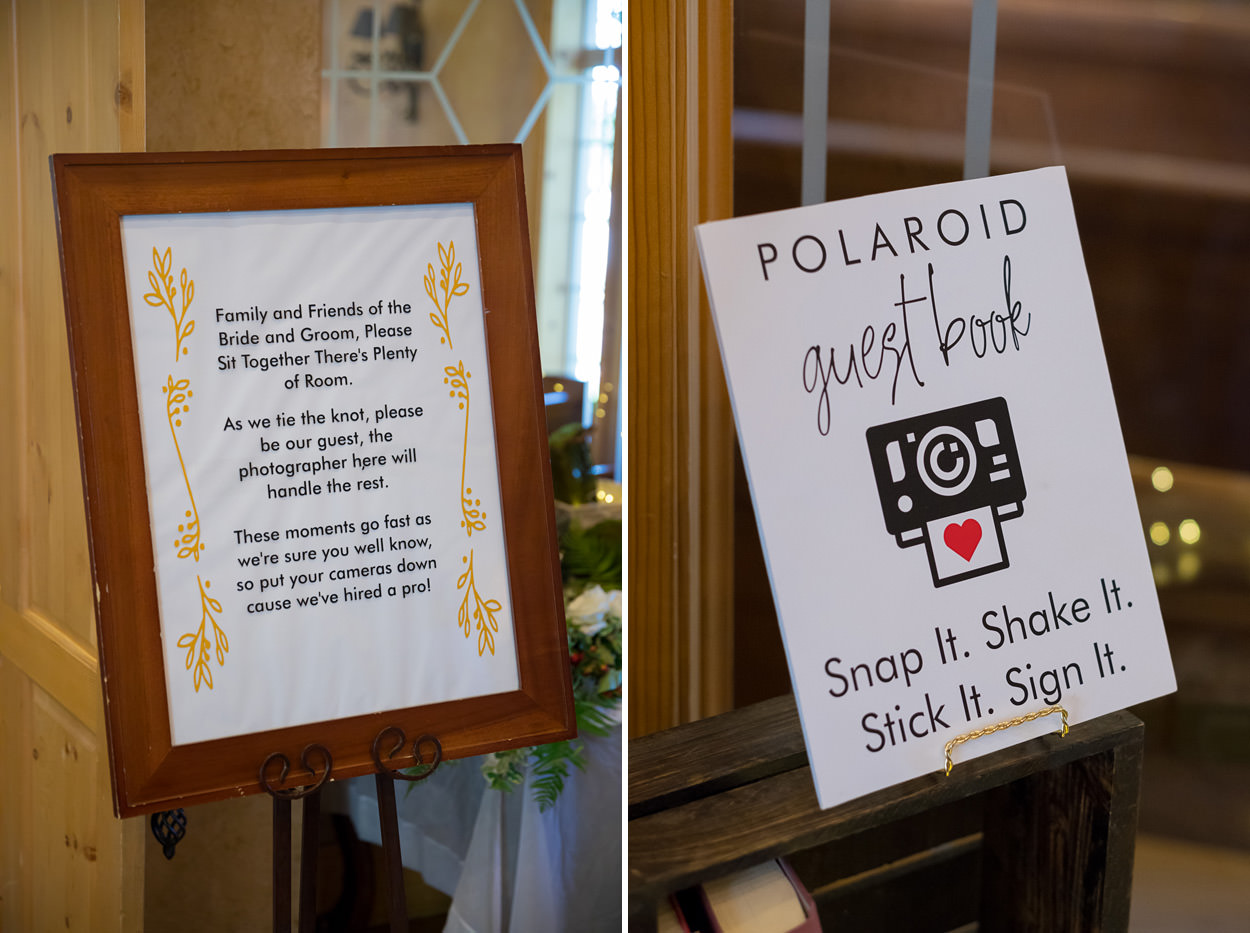 Family and Friends of the
Bride and Groom, Please
Sit Together There's Plenty
of Room.
As we tie the knot, please
be our guest, the
photographer here will
handle the rest.
These moments go fast as
we're sure you well know,
so put your cameras down
cause we've hired a pro!
POLAROID
guest book
Snap It. Shake It.
Stick It. Sign It.